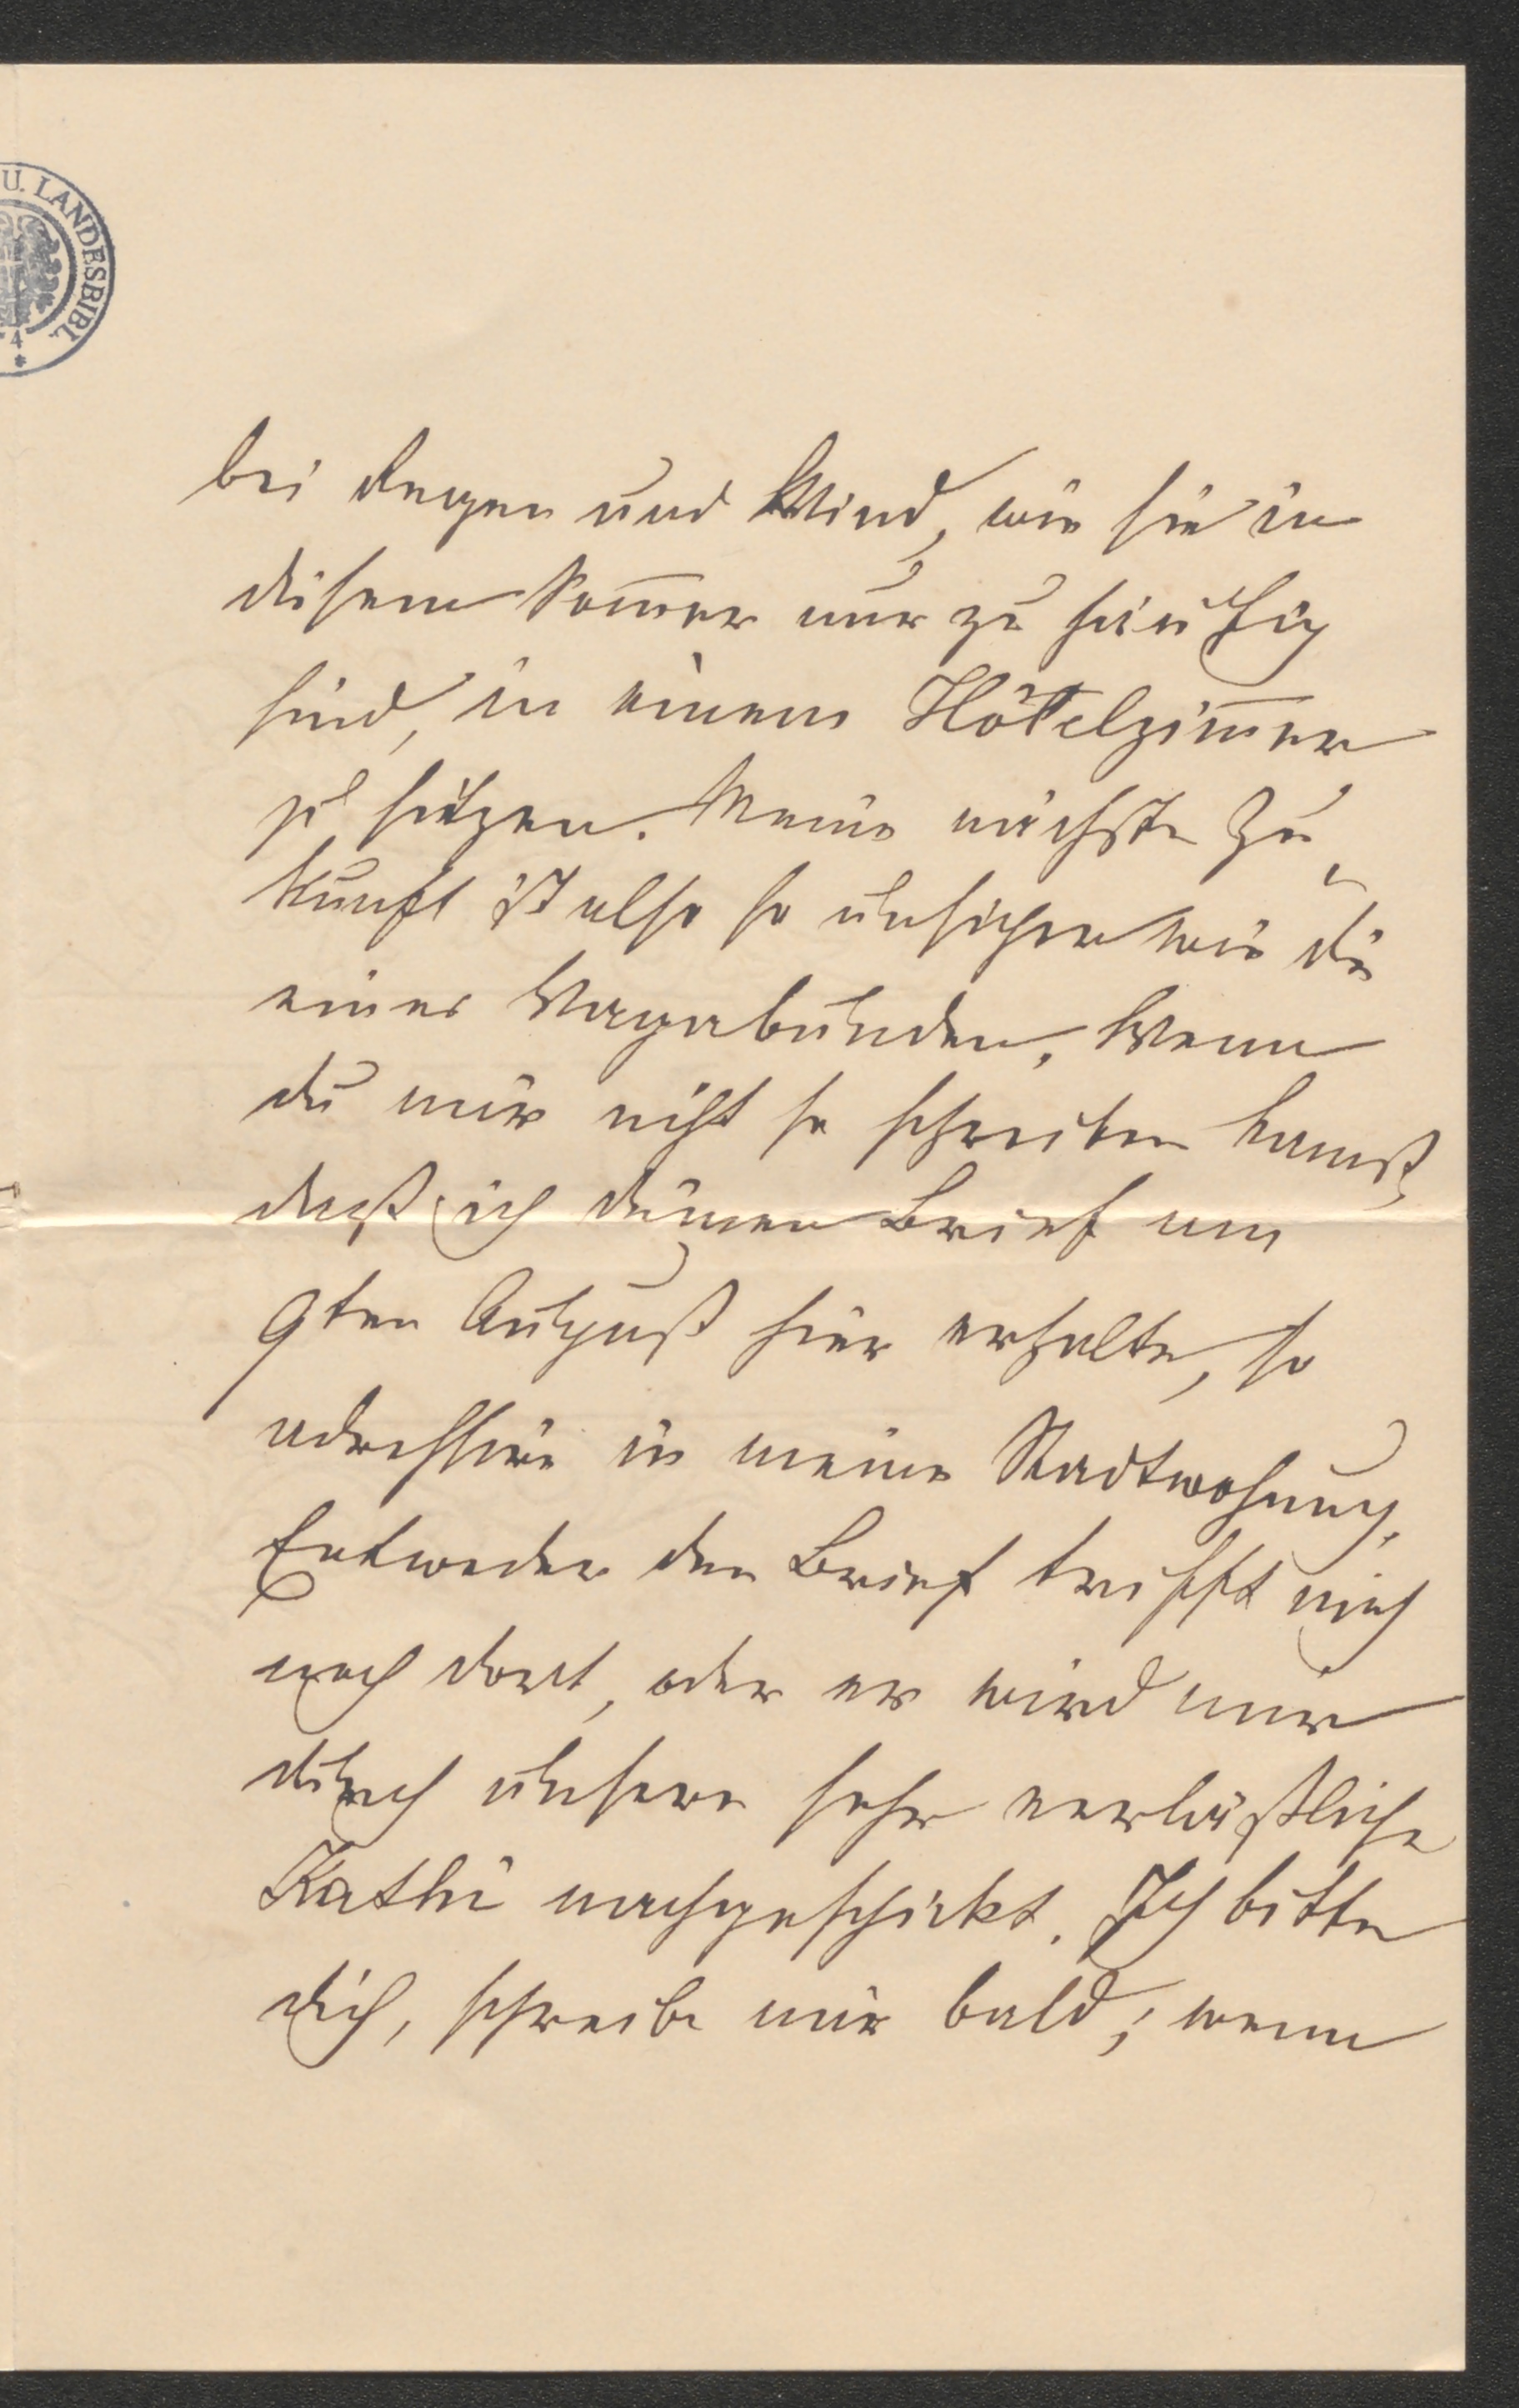 U. LANDESBIBL.
4
*
bei Regen und Wind, wie sie in
disem Som̅er nur zu häufig
sind, in einem Hôtelzim̅er
zu sitzen. Meine nächste Zu
kunft ist also so unsicher wie die
eines Vagabunden. Wenn
du mir nicht so schreiben kannst,
daß ich deinen Brief am
9ten August hier erhalte, so
adressire in meine Stadtwohnung.
Entweder der Brief trifft mich
noch dort, oder er wird mir
durch unsere sehr verläßliche
Kathi nachgeschickt. Ich bitte
dich, schreibe mir bald; wenn